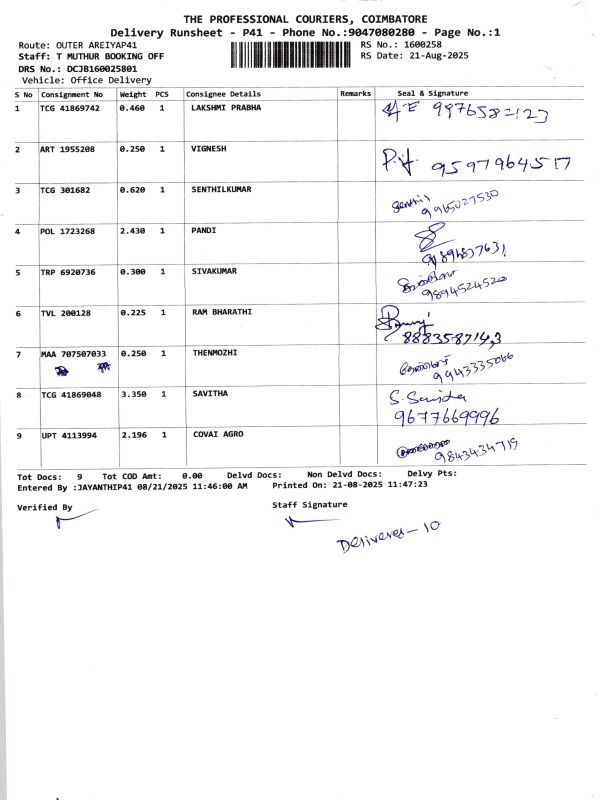 THE PROFESSIONAL COURIERS, COIMBATORE
Delivery Runsheet - P41 - Phone No.:9047080280 - Page No.:1
Route: OUTER AREIYAP41 RS No.: 1600258
Staff: T MUTHUR BOOKING OFF RS Date: 21-Aug-2025
DRS No.: DCJB160025801
Vehicle: Office Delivery
S No Consignment No Weight PCS Consignee Details Remarks Seal & Signature
1 TCG 41869742 0.460 1 LAKSHMI PRABHA
2 ART 1955208 0.250 1 VIGNESH 9597964517
3 TCG 301682 0.620 1 SENTHILKUMAR 9965027530
4 POL 1723268 2.430 1 PANDI
5 TRP 6920736 0.300 1 SIVAKUMAR 9894524520
6 TVL 200128 0.225 1 RAM BHARATHI
7 MAA 707507033 0.250 1 THENMOZHI 9943335066
8 TCG 41869048 3.350 1 SAVITHA S. Savida
9677669996
9 UPT 4113994 2.196 1 COVAI AGRO 9843434719
Tot Docs: 9 Tot COD Amt: 0.00 Delvd Docs: Non Delvd Docs: Delvy Pts:
Entered By :JAYANTHIP41 08/21/2025 11:46:00 AM Printed On: 21-08-2025 11:47:23
Verified By Staff Signature
Deliveres - 10